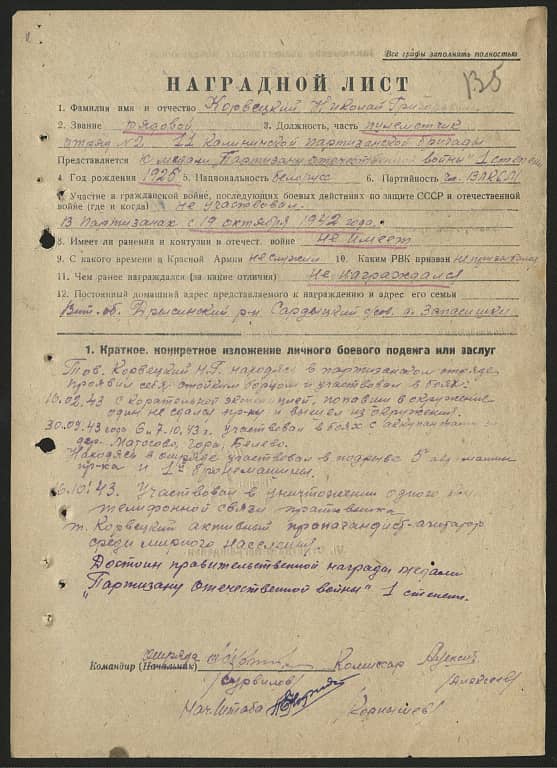 Все графы заполнять полностью
135
НАГРАДНОЙ ЛИСТ
1. Фамилия имя и отчество Корвецкий Николай Григорьевич
2. Звание рядовой 3. Должность, часть пулеметчик
отряд №2 22 Калининской партизанской бригады
Представляется к медали "Партизану отечественной войны" 1 степени
4. Год рождения 1926 5. Национальность белорус 6. Партийность чл. ВЛКСМ
7. Участие в гражданской войне, последующих боевых действиях по защите СССР и отечественной
войне (где и когда) не участвовал.
В партизанах с 19 октября 1942 года.
8. Имеет ли ранения и контузии в отечест. войне не имеет
9. С какого времени в Красной Армии не служил 10. Каким РВК призван не призывался
11. Чем ранее награждался (за какие отличия) Не награждался
12. Постоянный домашний адрес представляемого к награждению и адрес его семьи
Вит. об. Дрысинский р-н Сардыцкий д. Запасишки
1. Краткое, конкретное изложение личного боевого подвига или заслуг
Тов. Корвецкий Н.Г. находясь в партизанском отряде
проявил себя стойким борцом и участвовал в боях:
16.02.43 с карательной экспедицией, попавши в окружение
один не сдался пр-ку и вышел из окружения.
30.09.43 года 6 и 7.10.43 г. участвовал в боях с оккупантами за
дер. Матосово, Гора, Белево.
Находясь в отряде участвовал в подрыве 5 автомашин
пр-ка и 1ой бронемашины.
16.10.43. Участвовал в уничтожении одного
телефонной связи противника
т. Корвецкий активный пропагандист-агитатор
среди мирного населения.
Достоин правительственной награды медали
"Партизану Отечественной войны" 1 степени.
отряда
Командир (Начальник) Комиссар
(Сурвилов) (Алексеев)
Нач. Штаба (Корнышев)